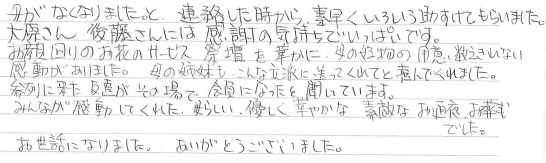 母がなくなりました。と、連絡した時から、素早くいろいろ助すけてもらいました。
大原さん 後藤さんには 感謝の気持ちでいっぱいです。
お顔回りのお花のサービス 祭壇を華かに、母の好物の用意、数えきれない
感動がありました。 母の姉妹も、こんな立派に送ってくれてと喜んでくれました。
参列に来た友達がその場で、会員になったと聞いています。
みんなが感動してくれた、素らしい、優しく 華やかな 素敵な お通夜、お葬式
でした。
お世話になりました。 ありがとうございました。